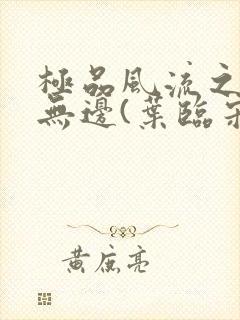 極品風流之
無邊(葉臨
黃庭亮